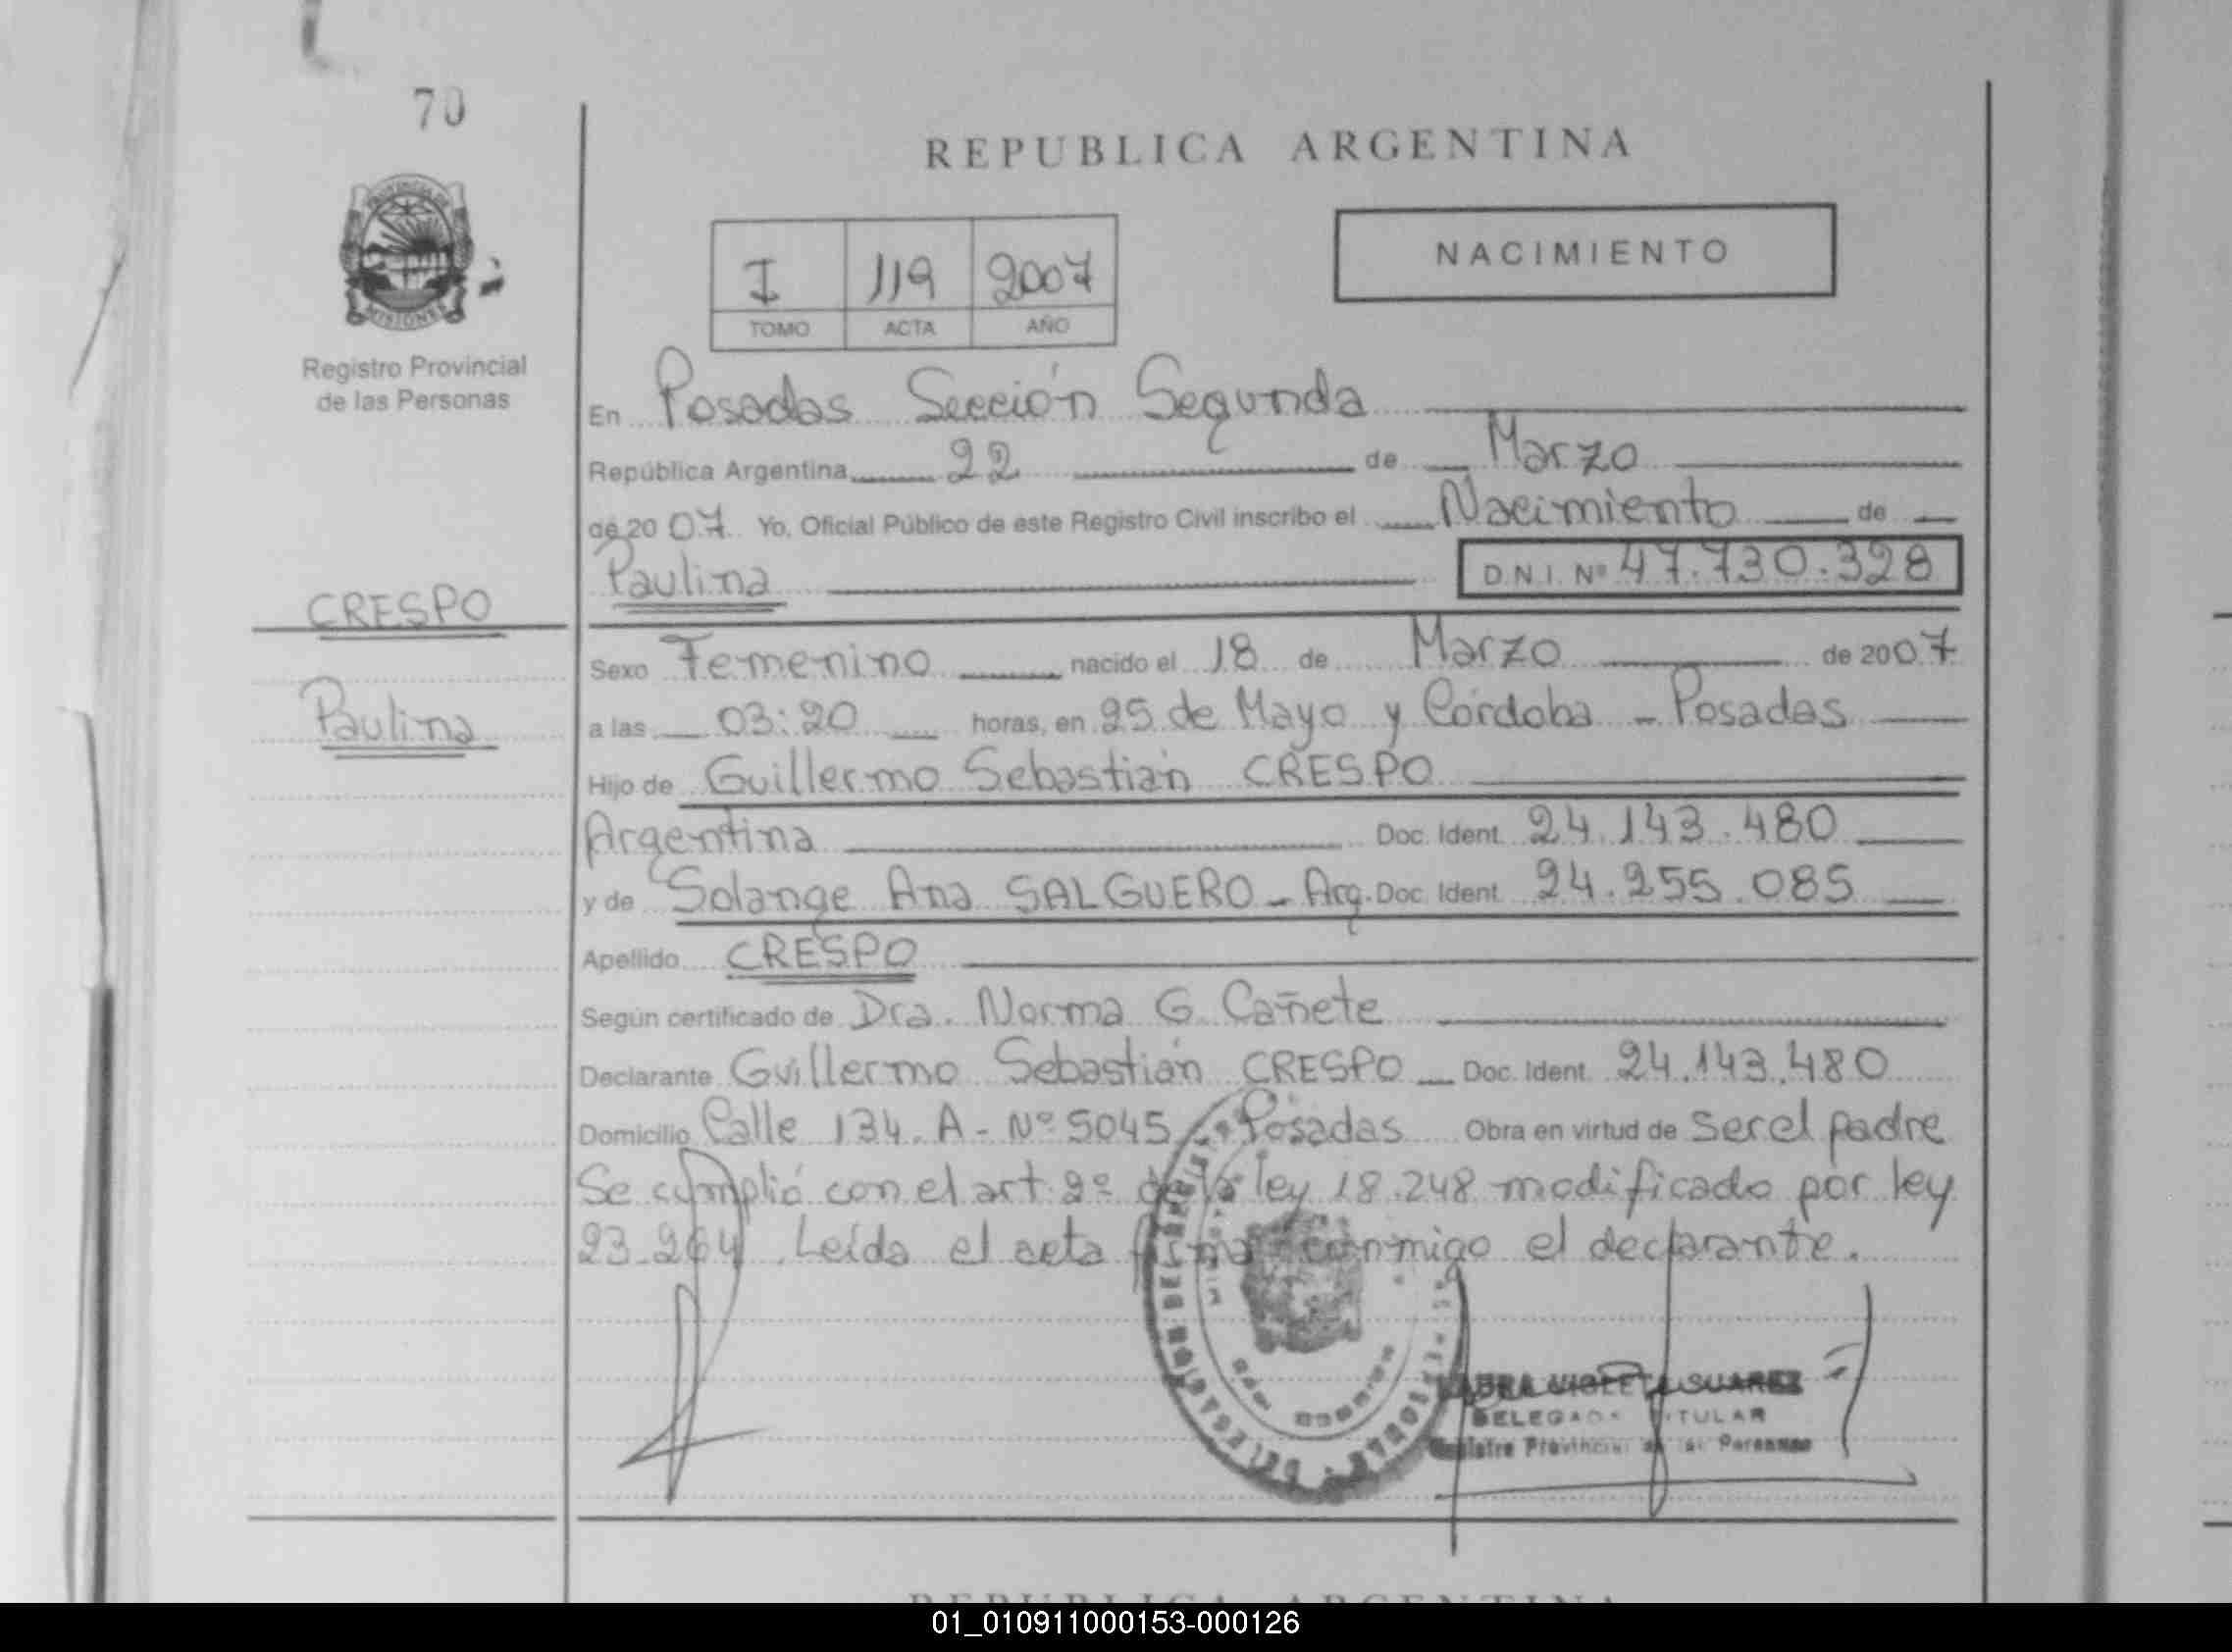 70
REPUBLICA ARGENTINA
PROVINCIA DE
MISIONES
Registro Provincial
de las Personas
I 119 2007
TOMO ACTA AÑO
NACIMIENTO
En Posadas Sección Segunda
República Argentina 22 de Marzo
de 2007 Yo, Oficial Público de este Registro Civil inscribo el Nacimiento de
Paulina D.N.I. Nº 47.730.328
CRESPO
Paulina
Sexo Femenino nacido el 18 de Marzo de 2007
a las 03:20 horas, en 25 de Mayo y Córdoba - Posadas
Hijo de Guillermo Sebastián CRESPO
Argentina Doc. Ident. 24.143.480
y de Solange Ana SALGUERO - Arg. Doc. Ident. 24.255.085
Apellido CRESPO
Según certificado de Dra. Norma G. Cañete
Declarante Guillermo Sebastián CRESPO - Doc. Ident. 24.143.480
Domicilio Calle 134. A - Nº 5045 Posadas Obra en virtud de ser el padre
Se cumplió con el art. 2º de la ley 18.248 modificado por ley
23.264. Leída el acta firma conmigo el declarante.
LAURA VIOLETA SUAREZ
DELEGADA TITULAR
Registro Provincial de las Personas
REPUBLICA ARGENTINA
01_010911000153-000126